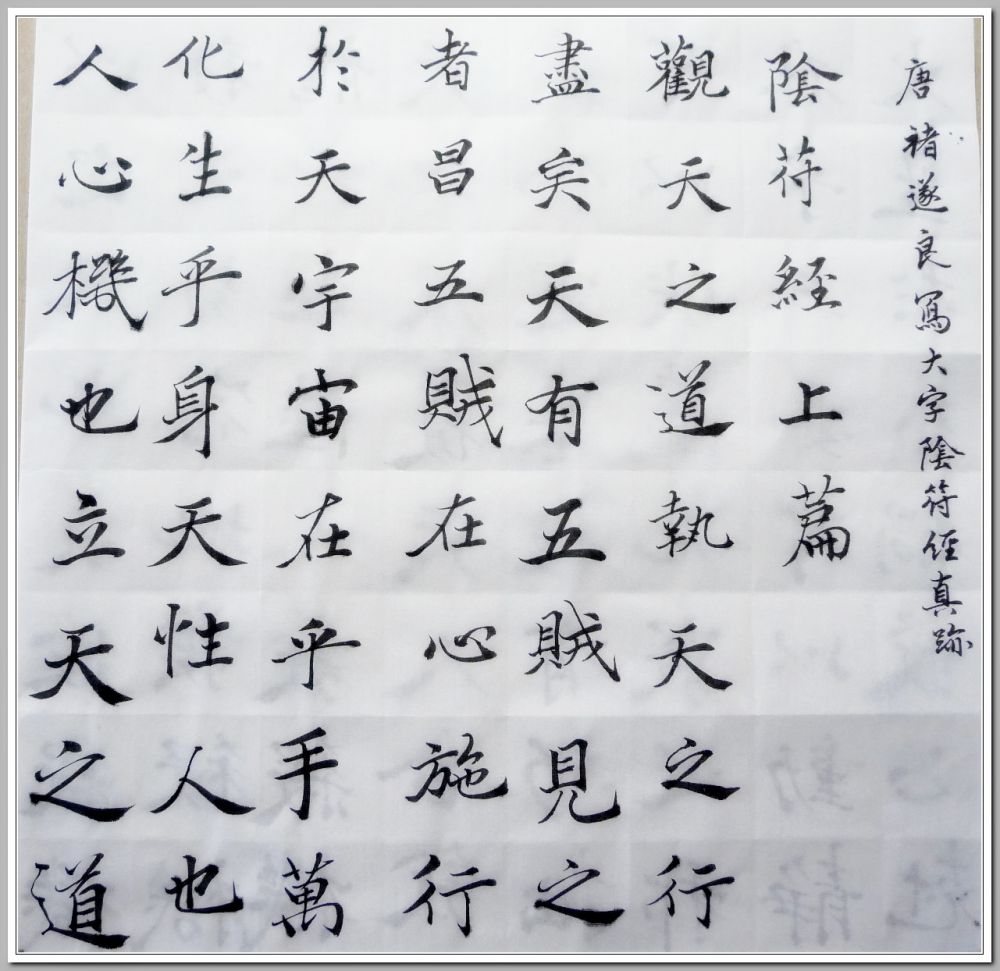 唐褚遂良寫大字陰符經真跡
陰符經上篇
觀天之道執天之行
盡矣天有五賊見之
者昌五賊在心施行
於天宇宙在乎手萬
化生乎身天性人也
人心機也立天之道